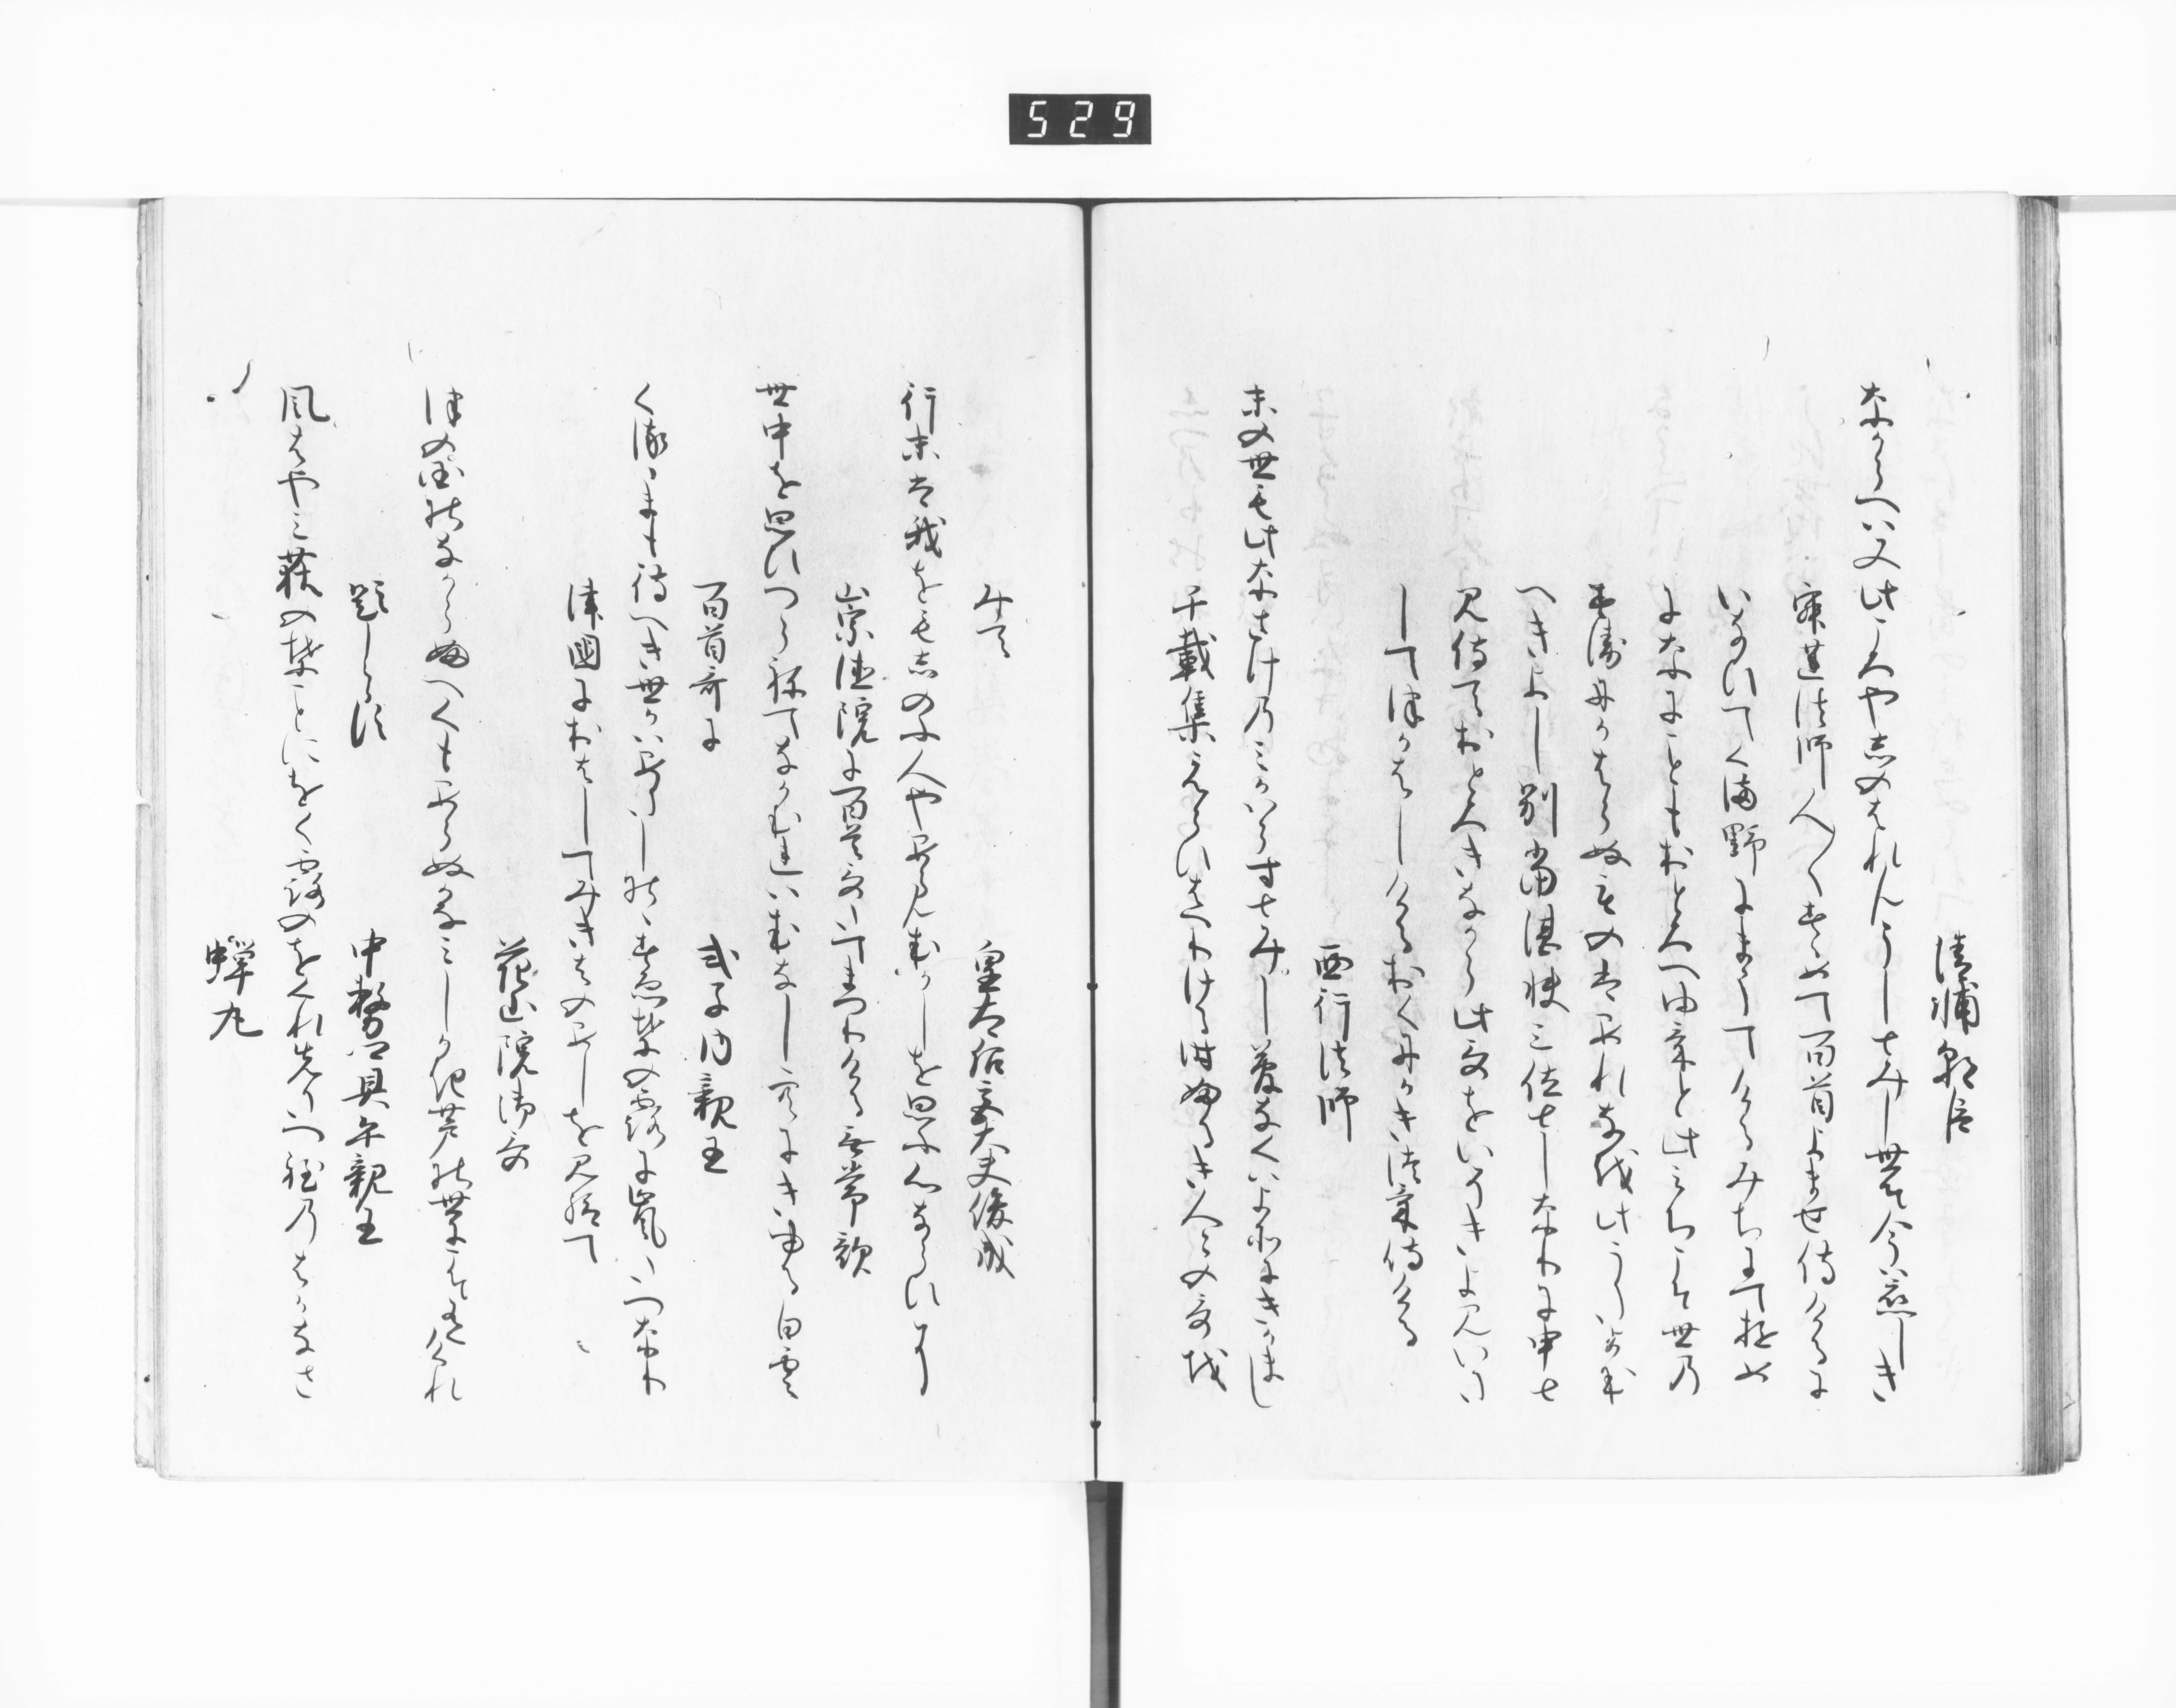 529
清輔朝臣
なからへは又此ころやしのはれんうしとみし世そ今は恋しき
寂蓮法師人々すゝめて百首よませ侍けるに
いなひてくま野にまうてけるみちにて夢に
なにことも おとろへゆけと此みちこそ世の
すゑにかはらぬものはあれなを此うたよむ
へきよし別当湛快三位としなりに申と
見侍ておとろきなから此哥をいそきよみいた
してつかはしけるおくにかき付侍ける
西行法師
末の世も此なさけのみかはらすとみし夢なくはよそにきかまし
千載集えらひ侍りける時ふるき人々の哥を
みて
皇太后宮大夫俊成
行末は我をもしのふ人やあらんむかしを思ふ心ならひに
崇徳院に百首哥たてまつりける無常歌
世中を思ひつらねてなかむれはむなしき空にきゆる白雲
百首哥に
式子内親王
くるゝまも待へき世かはあたし野の末葉の露に嵐たつなり
津国におはしてみきはのあしを見給て
花山院御哥
津の国のなからふへくもあらぬかなみしかき芦の世にこそ有けれ
題しらす
中務卿具平親王
風はやみ荻の葉ことにをく露のをくれ先たつ程のはかなさ
蝉丸